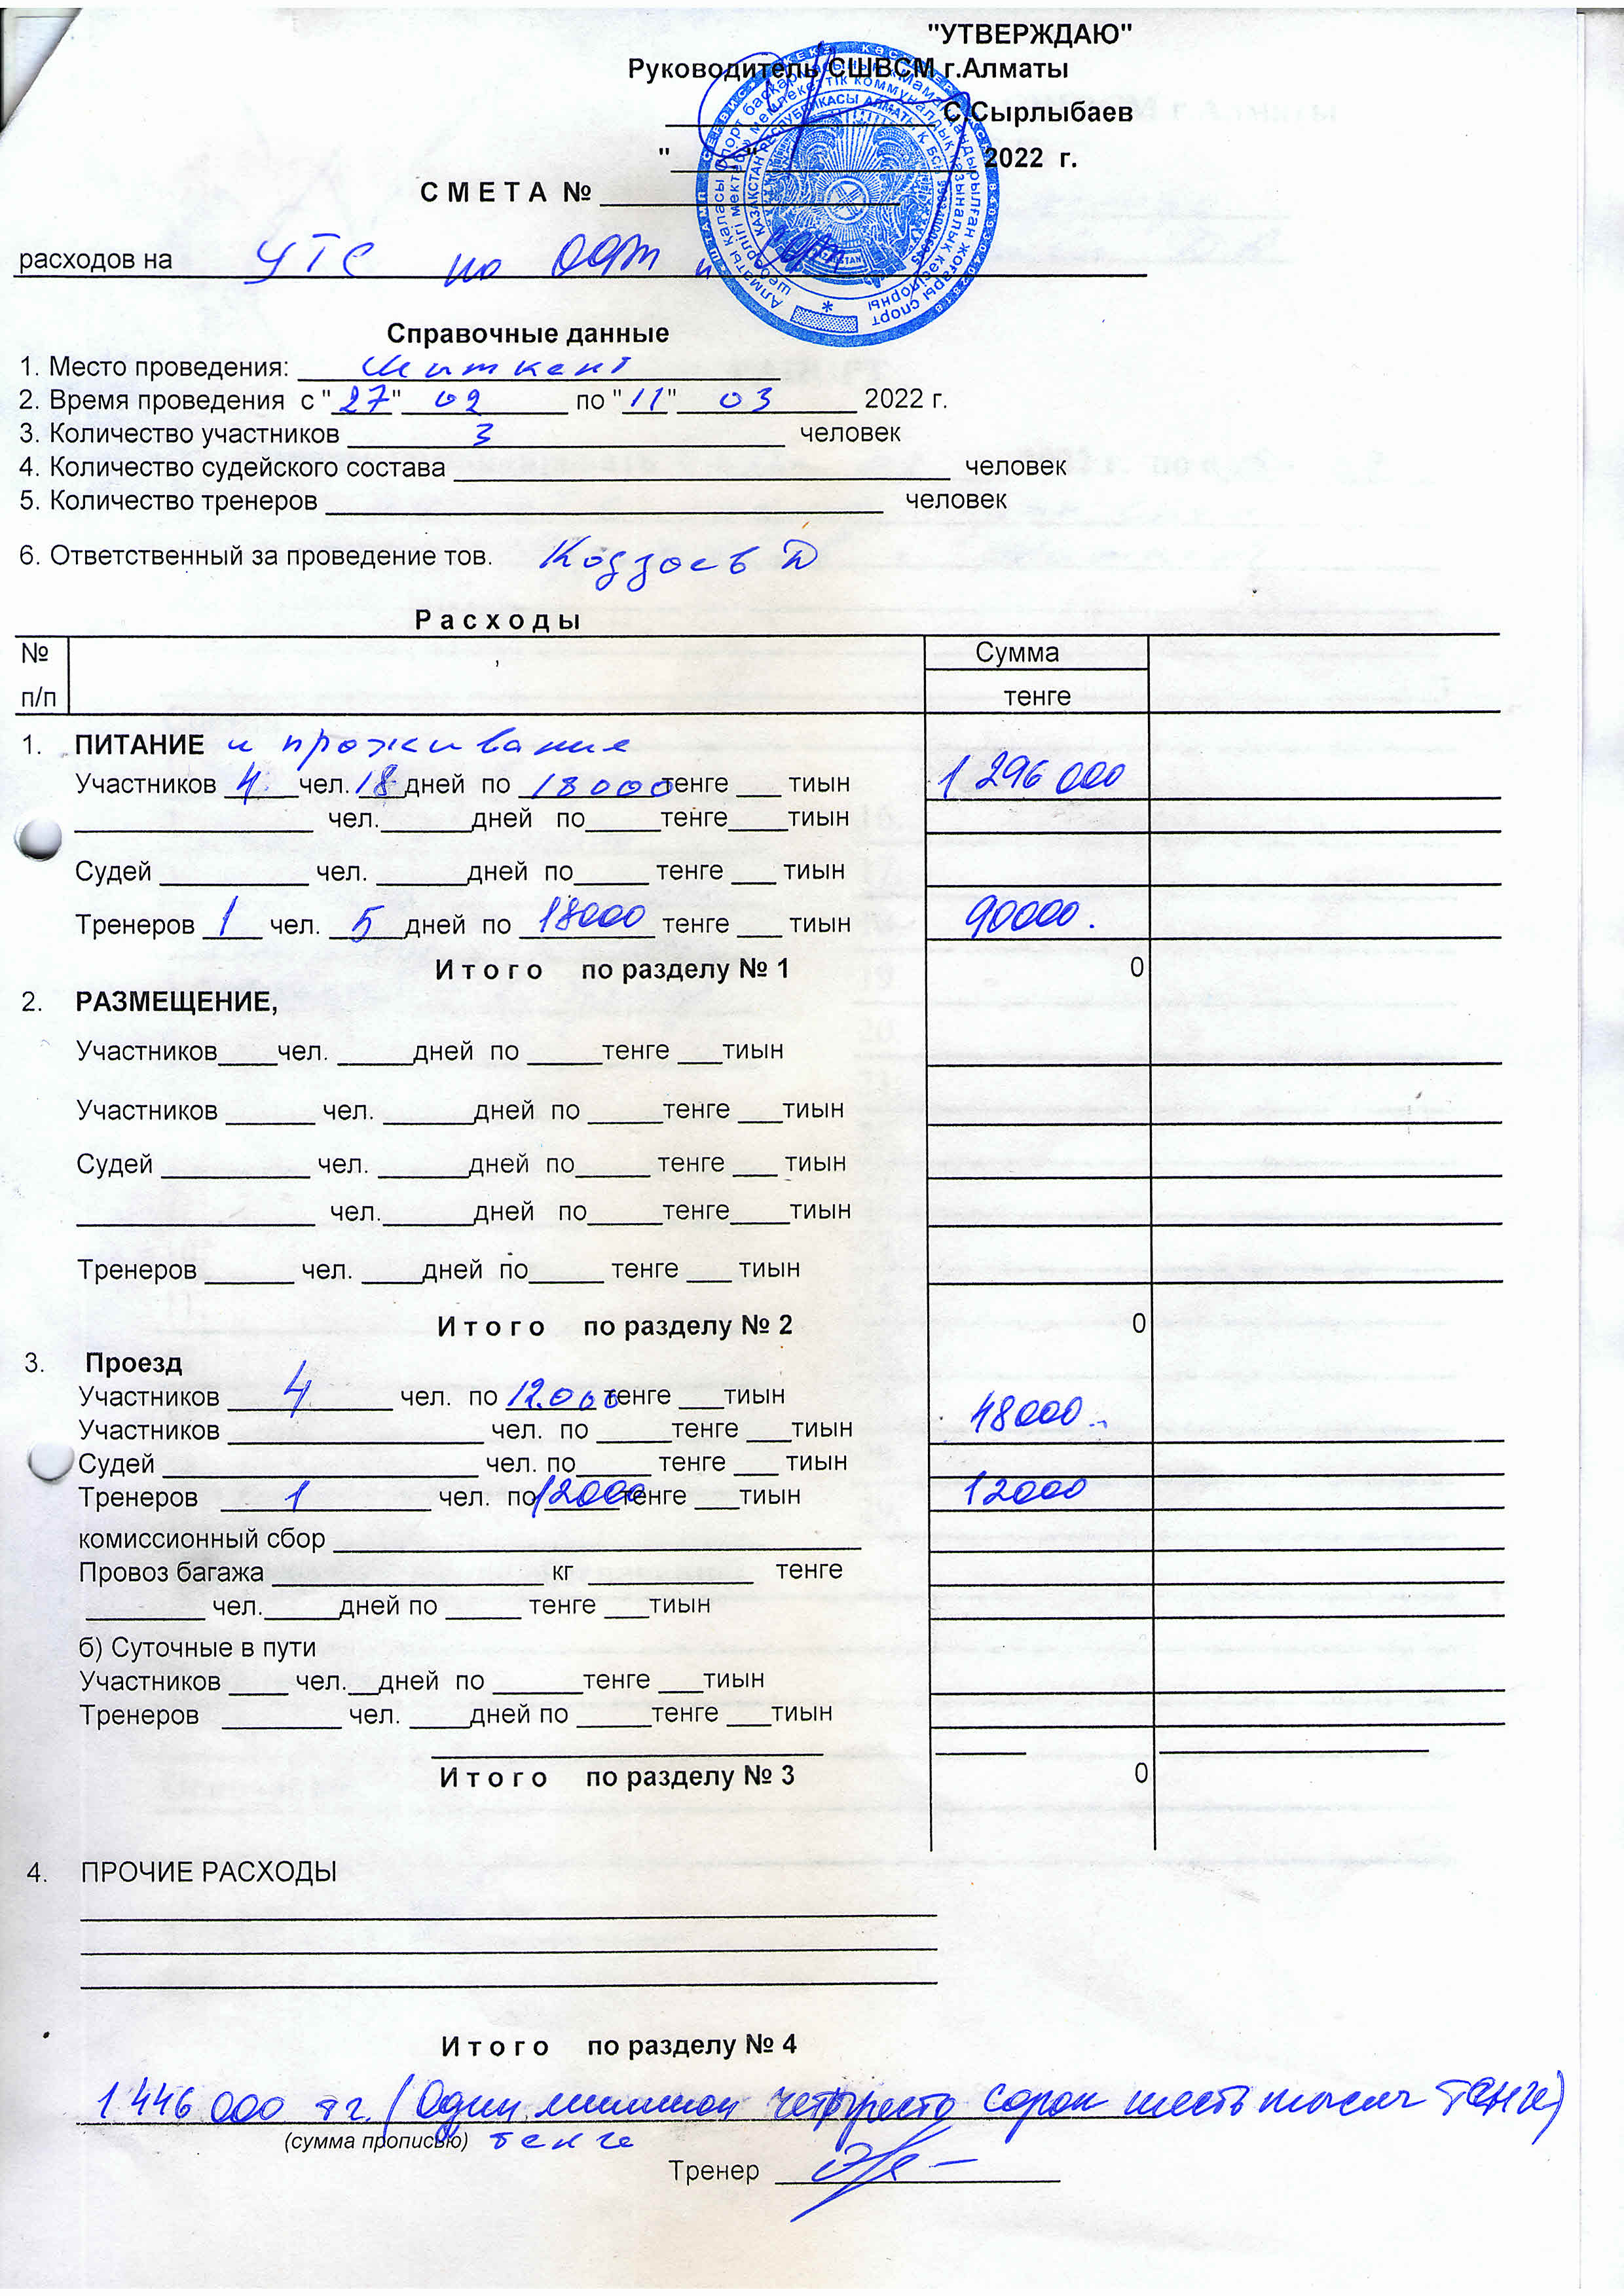 "УТВЕРЖДАЮ"
Руководитель СШВСМ г.Алматы
С.Сырлыбаев
"____"____________ 2022 г.
С М Е Т А №
расходов на УТС по ООФП и СФП
Справочные данные
1. Место проведения: Шымкент
2. Время проведения с "27" 02 по "11" 03 2022 г.
3. Количество участников 3 человек
4. Количество судейского состава ____ человек
5. Количество тренеров ____ человек
6. Ответственный за проведение тов. Кодзоев Д
Р а с х о д ы
№ п/п Сумма
тенге
1. ПИТАНИЕ и проживание
Участников 4 чел. 18 дней по 18000 тенге ___ тиын 1 296 000
____ чел.____дней по____тенге____тиын
Судей ____ чел. ____дней по____ тенге ___ тиын
Тренеров 1 чел. 5 дней по 18000 тенге ___ тиын 90000.
И т о г о по разделу № 1 0
2. РАЗМЕЩЕНИЕ,
Участников____чел. ____дней по ____тенге ___тиын
Участников ____ чел. ____дней по ____тенге ___тиын
Судей ____ чел. ____дней по____ тенге ___ тиын
____ чел.____дней по____тенге____тиын
Тренеров ____ чел. ____дней по____ тенге ___ тиын
И т о г о по разделу № 2 0
3. Проезд
Участников 4 чел. по 12.000 тенге ___тиын 48000
Участников ____ чел. по ____тенге ___тиын
Судей ____ чел. по____ тенге ___ тиын
Тренеров 1 чел. по 12000 тенге ___тиын 12000
комиссионный сбор
Провоз багажа ____ кг ____ тенге
____ чел.____дней по ____ тенге ___тиын
б) Суточные в пути
Участников ____ чел.__дней по ____тенге ___тиын
Тренеров ____ чел. ____дней по ____тенге ___тиын
И т о г о по разделу № 3 0
4. ПРОЧИЕ РАСХОДЫ
И т о г о по разделу № 4
1 446 000 тг. (Один миллион четыреста сорок шесть тысяч тенге)
(сумма прописью) тенге
Тренер